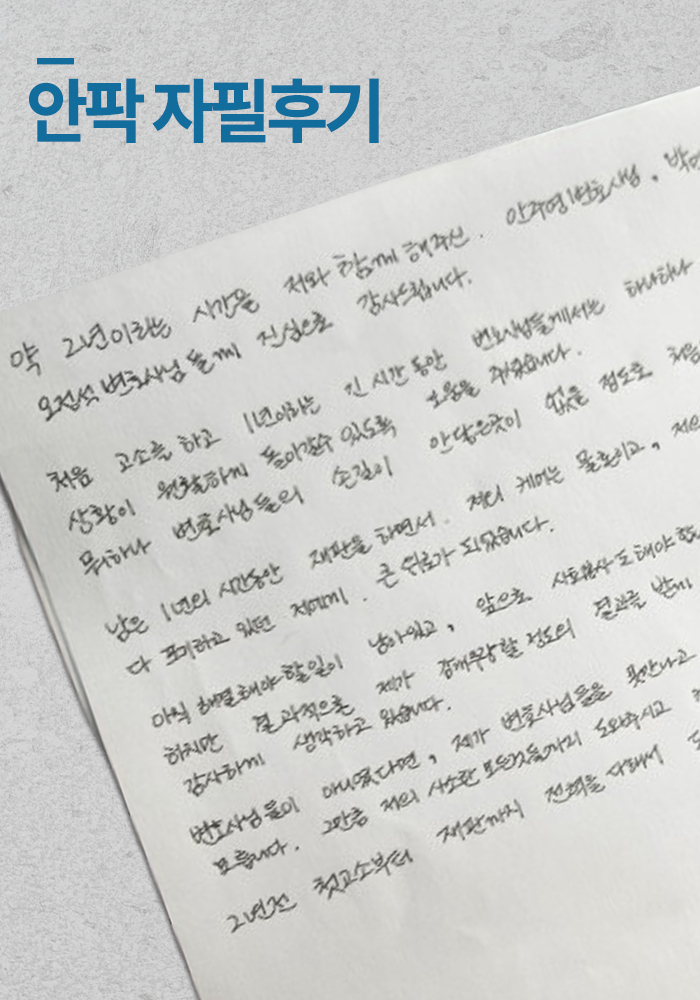 안팍 자필후기
약 2년이라는 시간을 저와 함께 해주신. 안주영변호사님, 박
오정석 변호사님 들께 진심으로 감사드립니다.
처음 고소를 하고 1년이라는 긴 시간 동안 변호사님들께서는 하나하나
상황이 원활하게 돌아갈수 있도록 도움을 주셨습니다.
뭐하나 변호사님들의 손길이 안닿은곳이 없을 정도로 처음
남은 1년의 시간동안 재판을 하면서. 저의 케어는 물론이고, 저의
다 포기하고 있던 저에게. 큰 위로가 되었습니다.
아직 해결해야할일이 남아있고, 앞으로 도 해야
하지만 결과적으론 제가 감개무량할 정도의 결과를 받게
감사하게 생각하고 있습니다.
변호사님들이 아니였다면, 제가 변호사님들을 못만나고
모릅니다. 그만큼 저의 사소한 모든것들까지 도와주시고
2년전 첫고소부터 재판까지 전력을 다해서